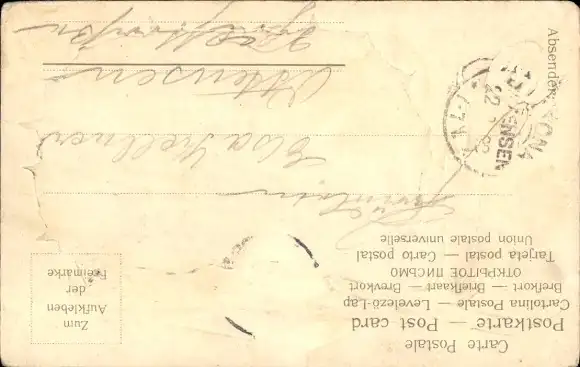 Carte Postale
Postkarte — Post card
Cartolina Postale — Levelező-Lap
Brefkort — Briefkaart — Brevkort
ОТКРЫТОЕ ПИСЬМО
Tarjeta postal — Carto postal
Union postale universelle
Zum
Aufkleben
der
Freimarke
Fräulein
Elsa Kellner
Ottensen
Absender:
TONA
ENSEN